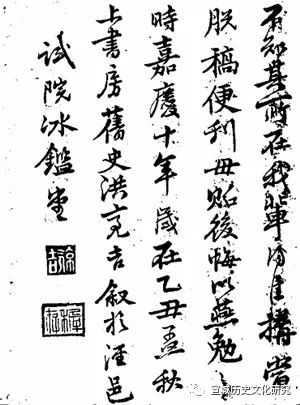 有知其所在我輩 當
脫稿便刊毋貽後悔以 勉
時嘉慶十年歲在乙丑孟秋
上書房舊史洪亮吉叙於涇邑
試院冰鑑堂
宣城历史文化研究